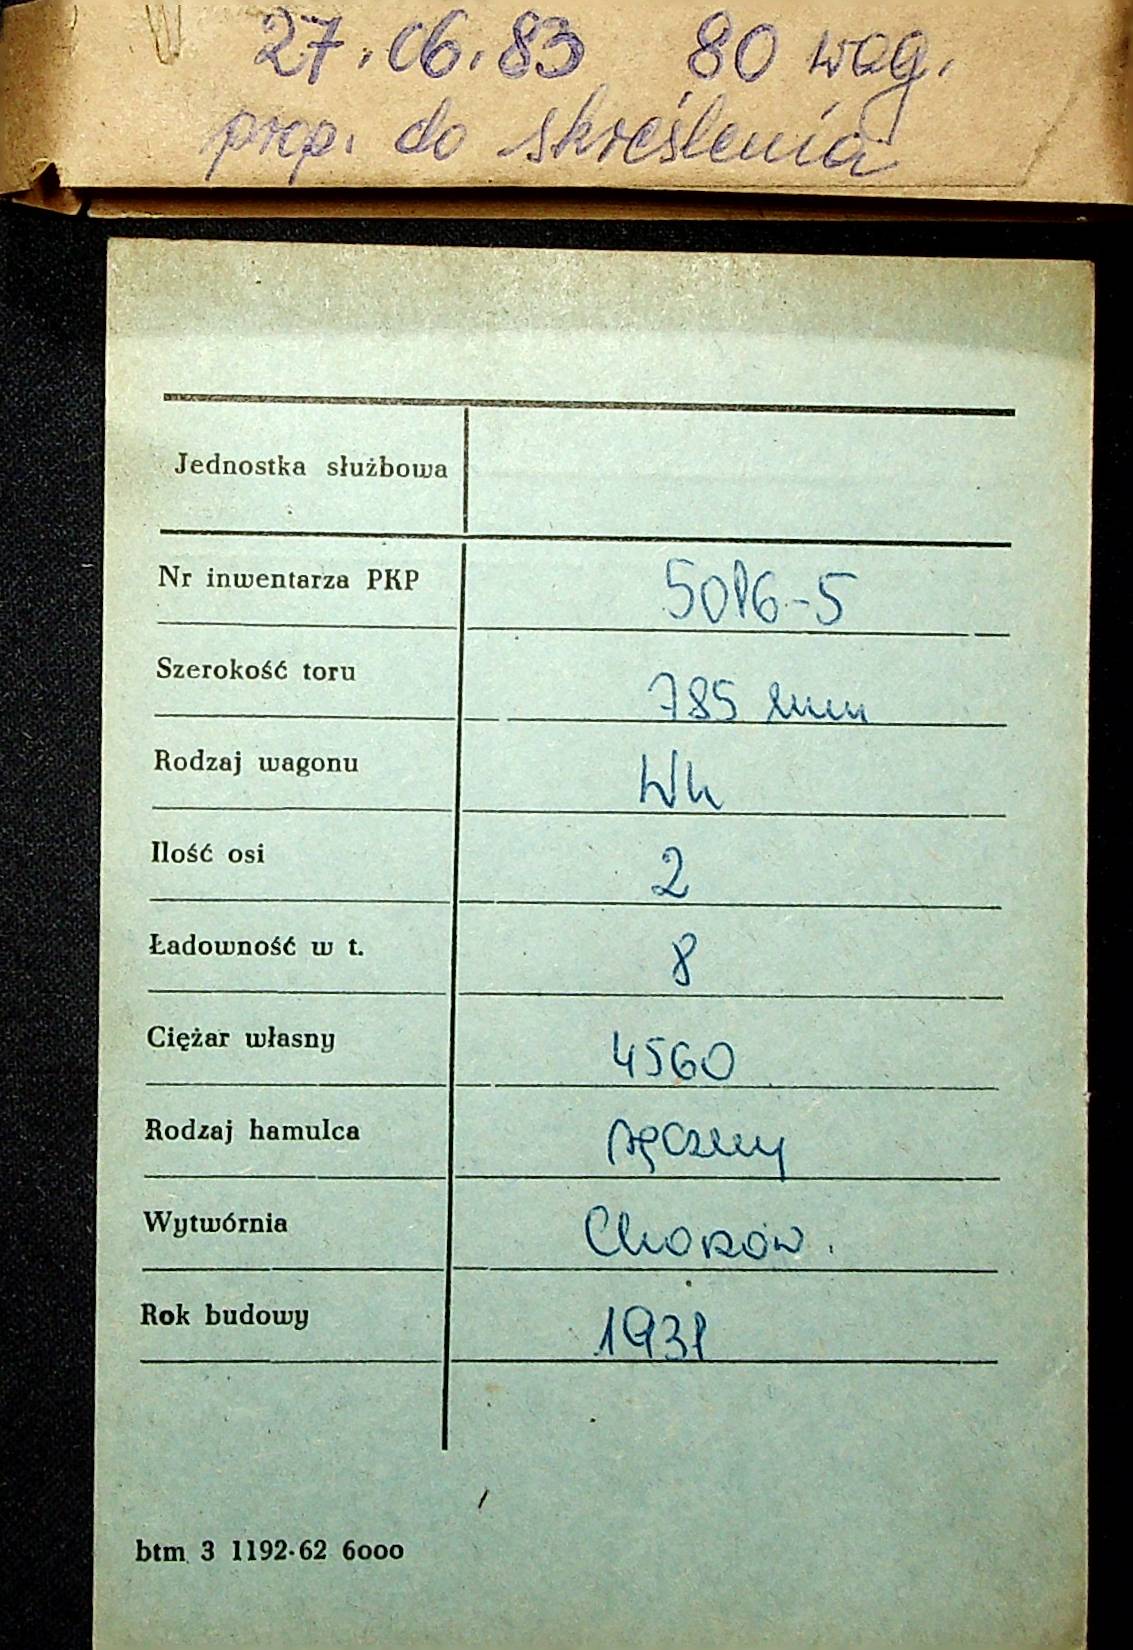 27.06.83 80 wag.
prop. do skreślenia
Jednostka służbowa
Nr inwentarza PKP 5016-5
Szerokość toru 785 mm
Rodzaj wagonu Wh
Ilość osi 2
Ładowność w t. 8
Ciężar własny 4560
Rodzaj hamulca ręczny
Wytwórnia Chorzów.
Rok budowy 1931
btm 3 1192-62 6000